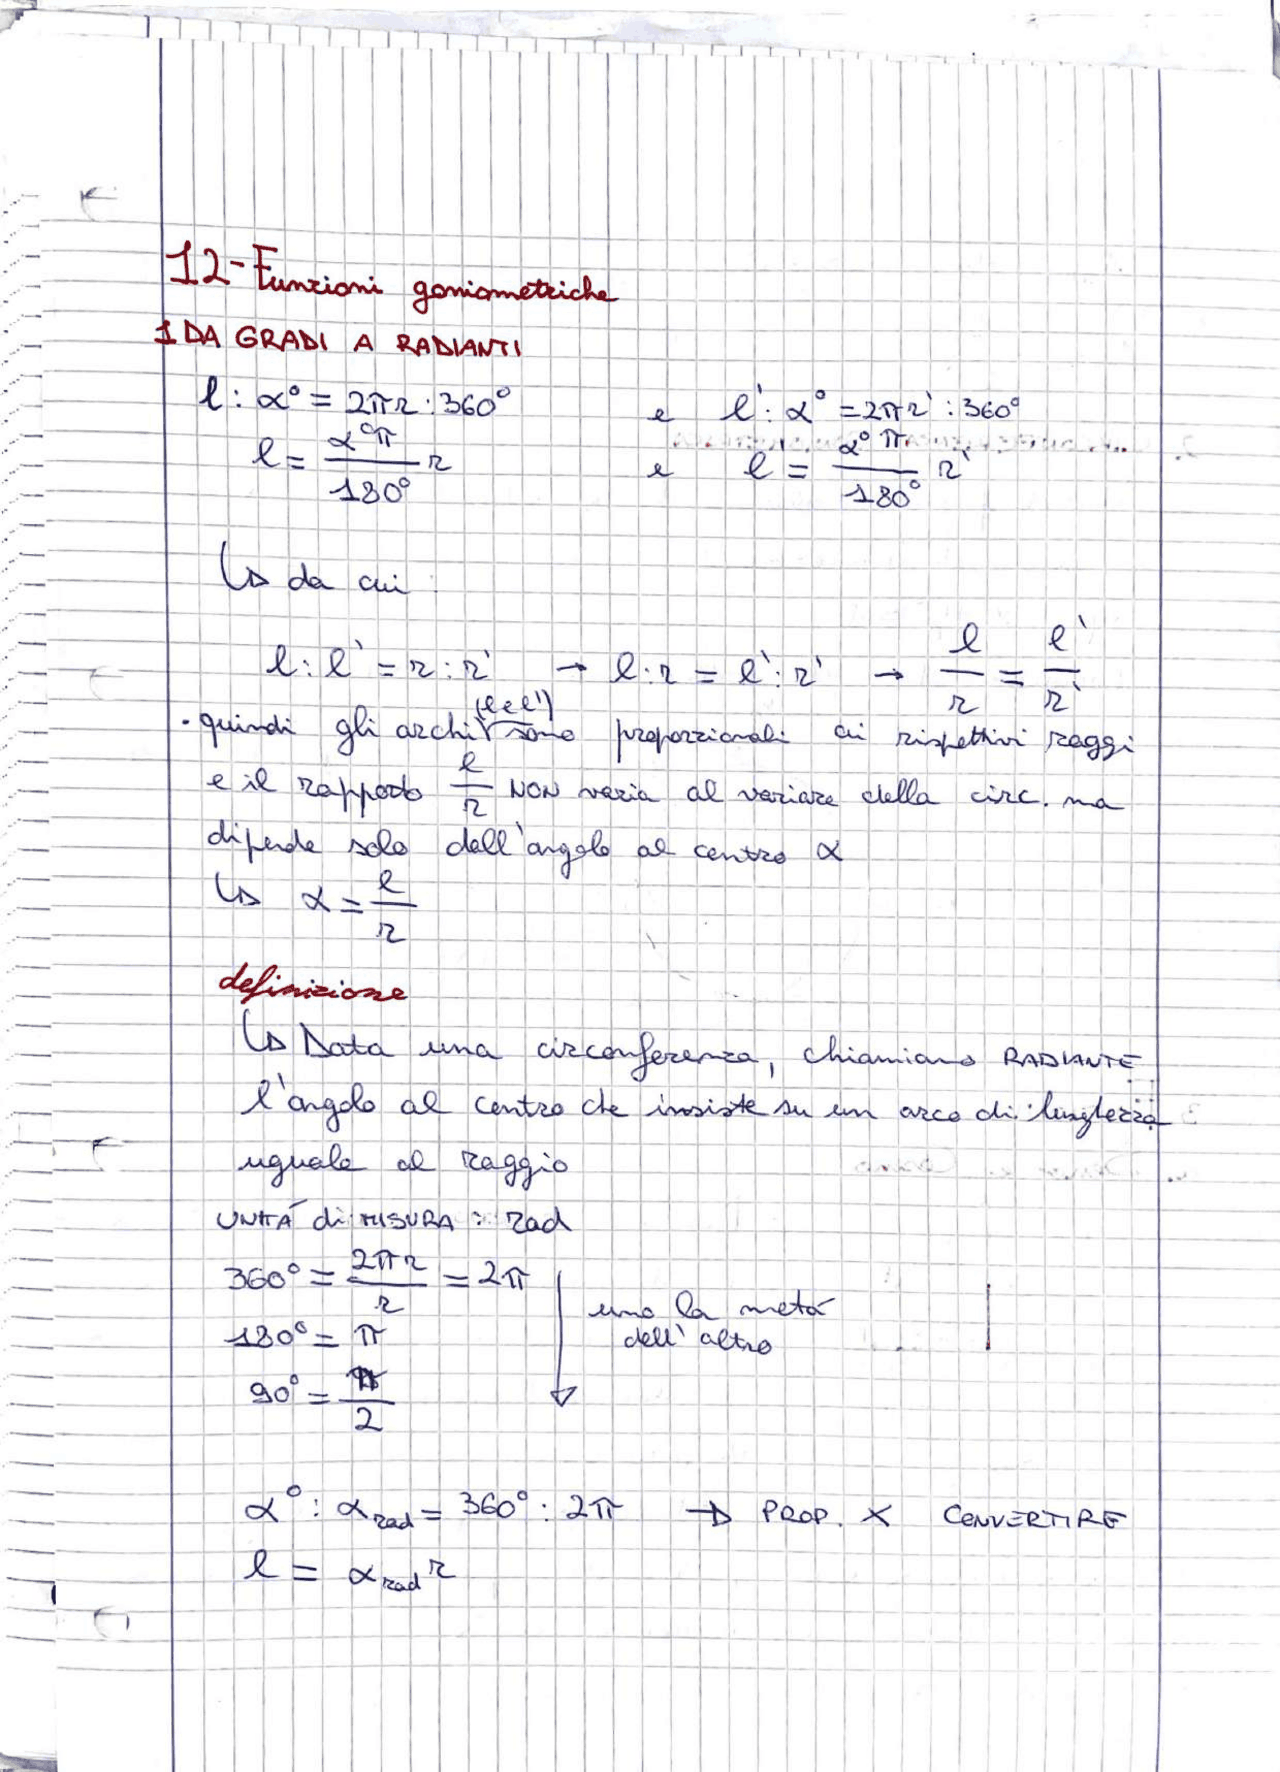 12-Funzioni goniometriche
1 DA GRADI A RADIANTI
l : α° = 2πr : 360° e l' : α° = 2πr' : 360°
l = α°π/180° r e l = α°π/180° r'
↳ da cui
l : l' = r : r' → l : r = l' : r' → l/r = l'/r'
(l e l')
• quindi gli archi sono proporzionali ai rispettivi raggi
e il rapporto l/r NON varia al variare della circ. ma
dipende solo dall'angolo al centro α
↳ α = l/r
definizione
↳ Data una circonferenza, chiamiamo RADIANTE
l'angolo al centro che insiste su un arco di lunghezza
uguale al raggio
UNITÀ di MISURA : rad
360° = 2πr/r = 2π
uno la metà
180° = π
dell'altro
90° = π/2
α° : α rad = 360° : 2π → PROP. X CONVERTIRE
l = α rad r